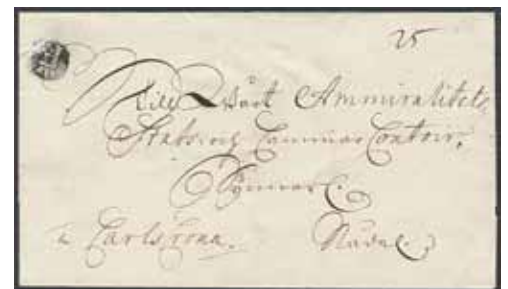 25
Till Vårt Ammiralitets
Stats och Cammar Contoir,
a Carlscrona.